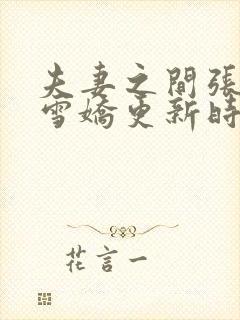 夫妻之間張
雪嬌更新時
花言一